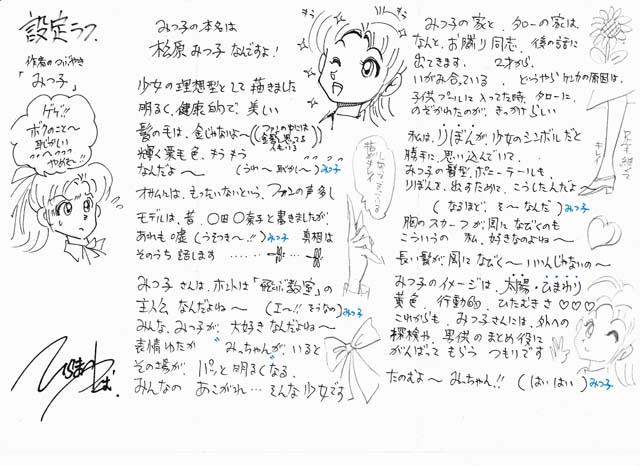 設定ラフ.
作者のつぶやき
「みつ子」
ゲゲ!!
ボクのこと〜
恥かしい
やめて〜!!
みつ子の本名は
松原みつ子なんですよ!
少女の理想型として描きました
明るく、健康的で、美しい
髪の毛は、金じゃないよ〜
輝く栗毛色、キラキラ
なんだよ〜 (うわ〜恥かし〜) みつ子
オサムには、もったいないという、ファンの声多し
モデルは、昔、○田○菜子と書きましたが、
あれも嘘 (うそつき〜!!) みつ子 真相は
そのうち話します ……
みつ子さんは、ホントは「教室」の
主人公なんだよね〜 (エ〜!! そうなの) みつ子
みんな、みつ子が、大好きなんだよね〜
表情ゆたか "みっちゃんが、いると
その場が、パッと明るくなる."
みんなの あこがれ… そんな少女です
キラ
キラ
みつ子の家と タローの家は、
なんと、お隣り同志、後の話に
出てきます. 2才から、
いがみ合っている. どうやらケンカの原因は、
子供プールに入ってた時、タローに、
のぞかれたのが、きっかけらしい
私は、りぼんが少女のシンボルだと
勝手に、思い込んでいて.
みつ子の髪型、ポニーテールも、
りぼんを、出すために、こうしたんだよ
(なるほど、そ〜なんだ) みつ子
胸のスカーフが風になびくのも
こういうの 私、好きなのよね〜
長い髪が、風になびく〜 いいんじゃないの〜
みつ子のイメージは、太陽・ひまわり
黄色、行動的、ひたむきさ ♡♡♡
これからも、みつ子さんには、外への
探検や、男供のまとめ役に
がんばってもらう つもりです
たのむよ〜 みっちゃん!! (はいはい) みつ子